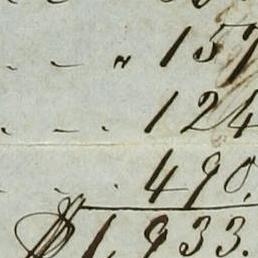 " 157
124
490.
$1,933.